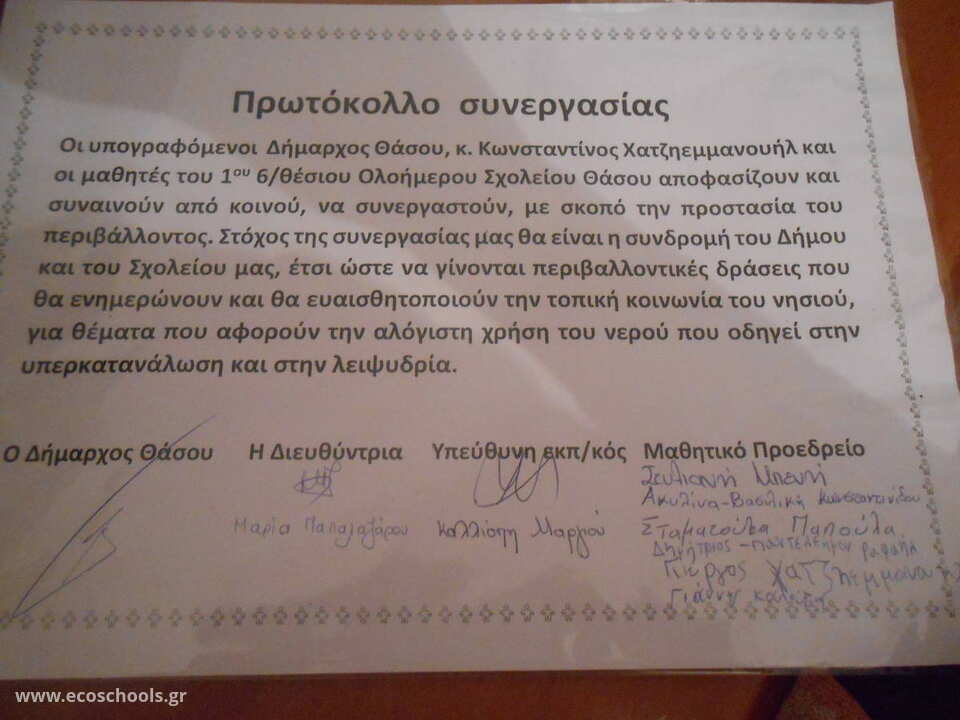 Πρωτόκολλο συνεργασίας
Οι υπογραφόμενοι Δήμαρχος Θάσου, κ. Κωνσταντίνος Χατζηεμμανουήλ και
οι μαθητές του 1ου 6/θέσιου Ολοήμερου Σχολείου Θάσου αποφασίζουν και
συναινούν από κοινού, να συνεργαστούν, με σκοπό την προστασία του
περιβάλλοντος. Στόχος της συνεργασίας μας θα είναι η συνδρομή του Δήμου
και του Σχολείου μας, έτσι ώστε να γίνονται περιβαλλοντικές δράσεις που
θα ενημερώνουν και θα ευαισθητοποιούν την τοπική κοινωνία του νησιού,
για θέματα που αφορούν την αλόγιστη χρήση του νερού που οδηγεί στην
υπερκατανάλωση και στην λειψυδρία.
Ο Δήμαρχος Θάσου Η Διευθύντρια Υπεύθυνη εκπ/κός Μαθητικό Προεδρείο
Μαρία Παπαλαζάρου Καλλιόπη Μαργιού
Ακυλίνα-Βασιλική Κωνσταντινίδου
Σταματούλα Παπούλα
Δημήτριος-Παντελεήμον Ραφαήλ
Γιώργος
Γιάννης
www.ecoschools.gr